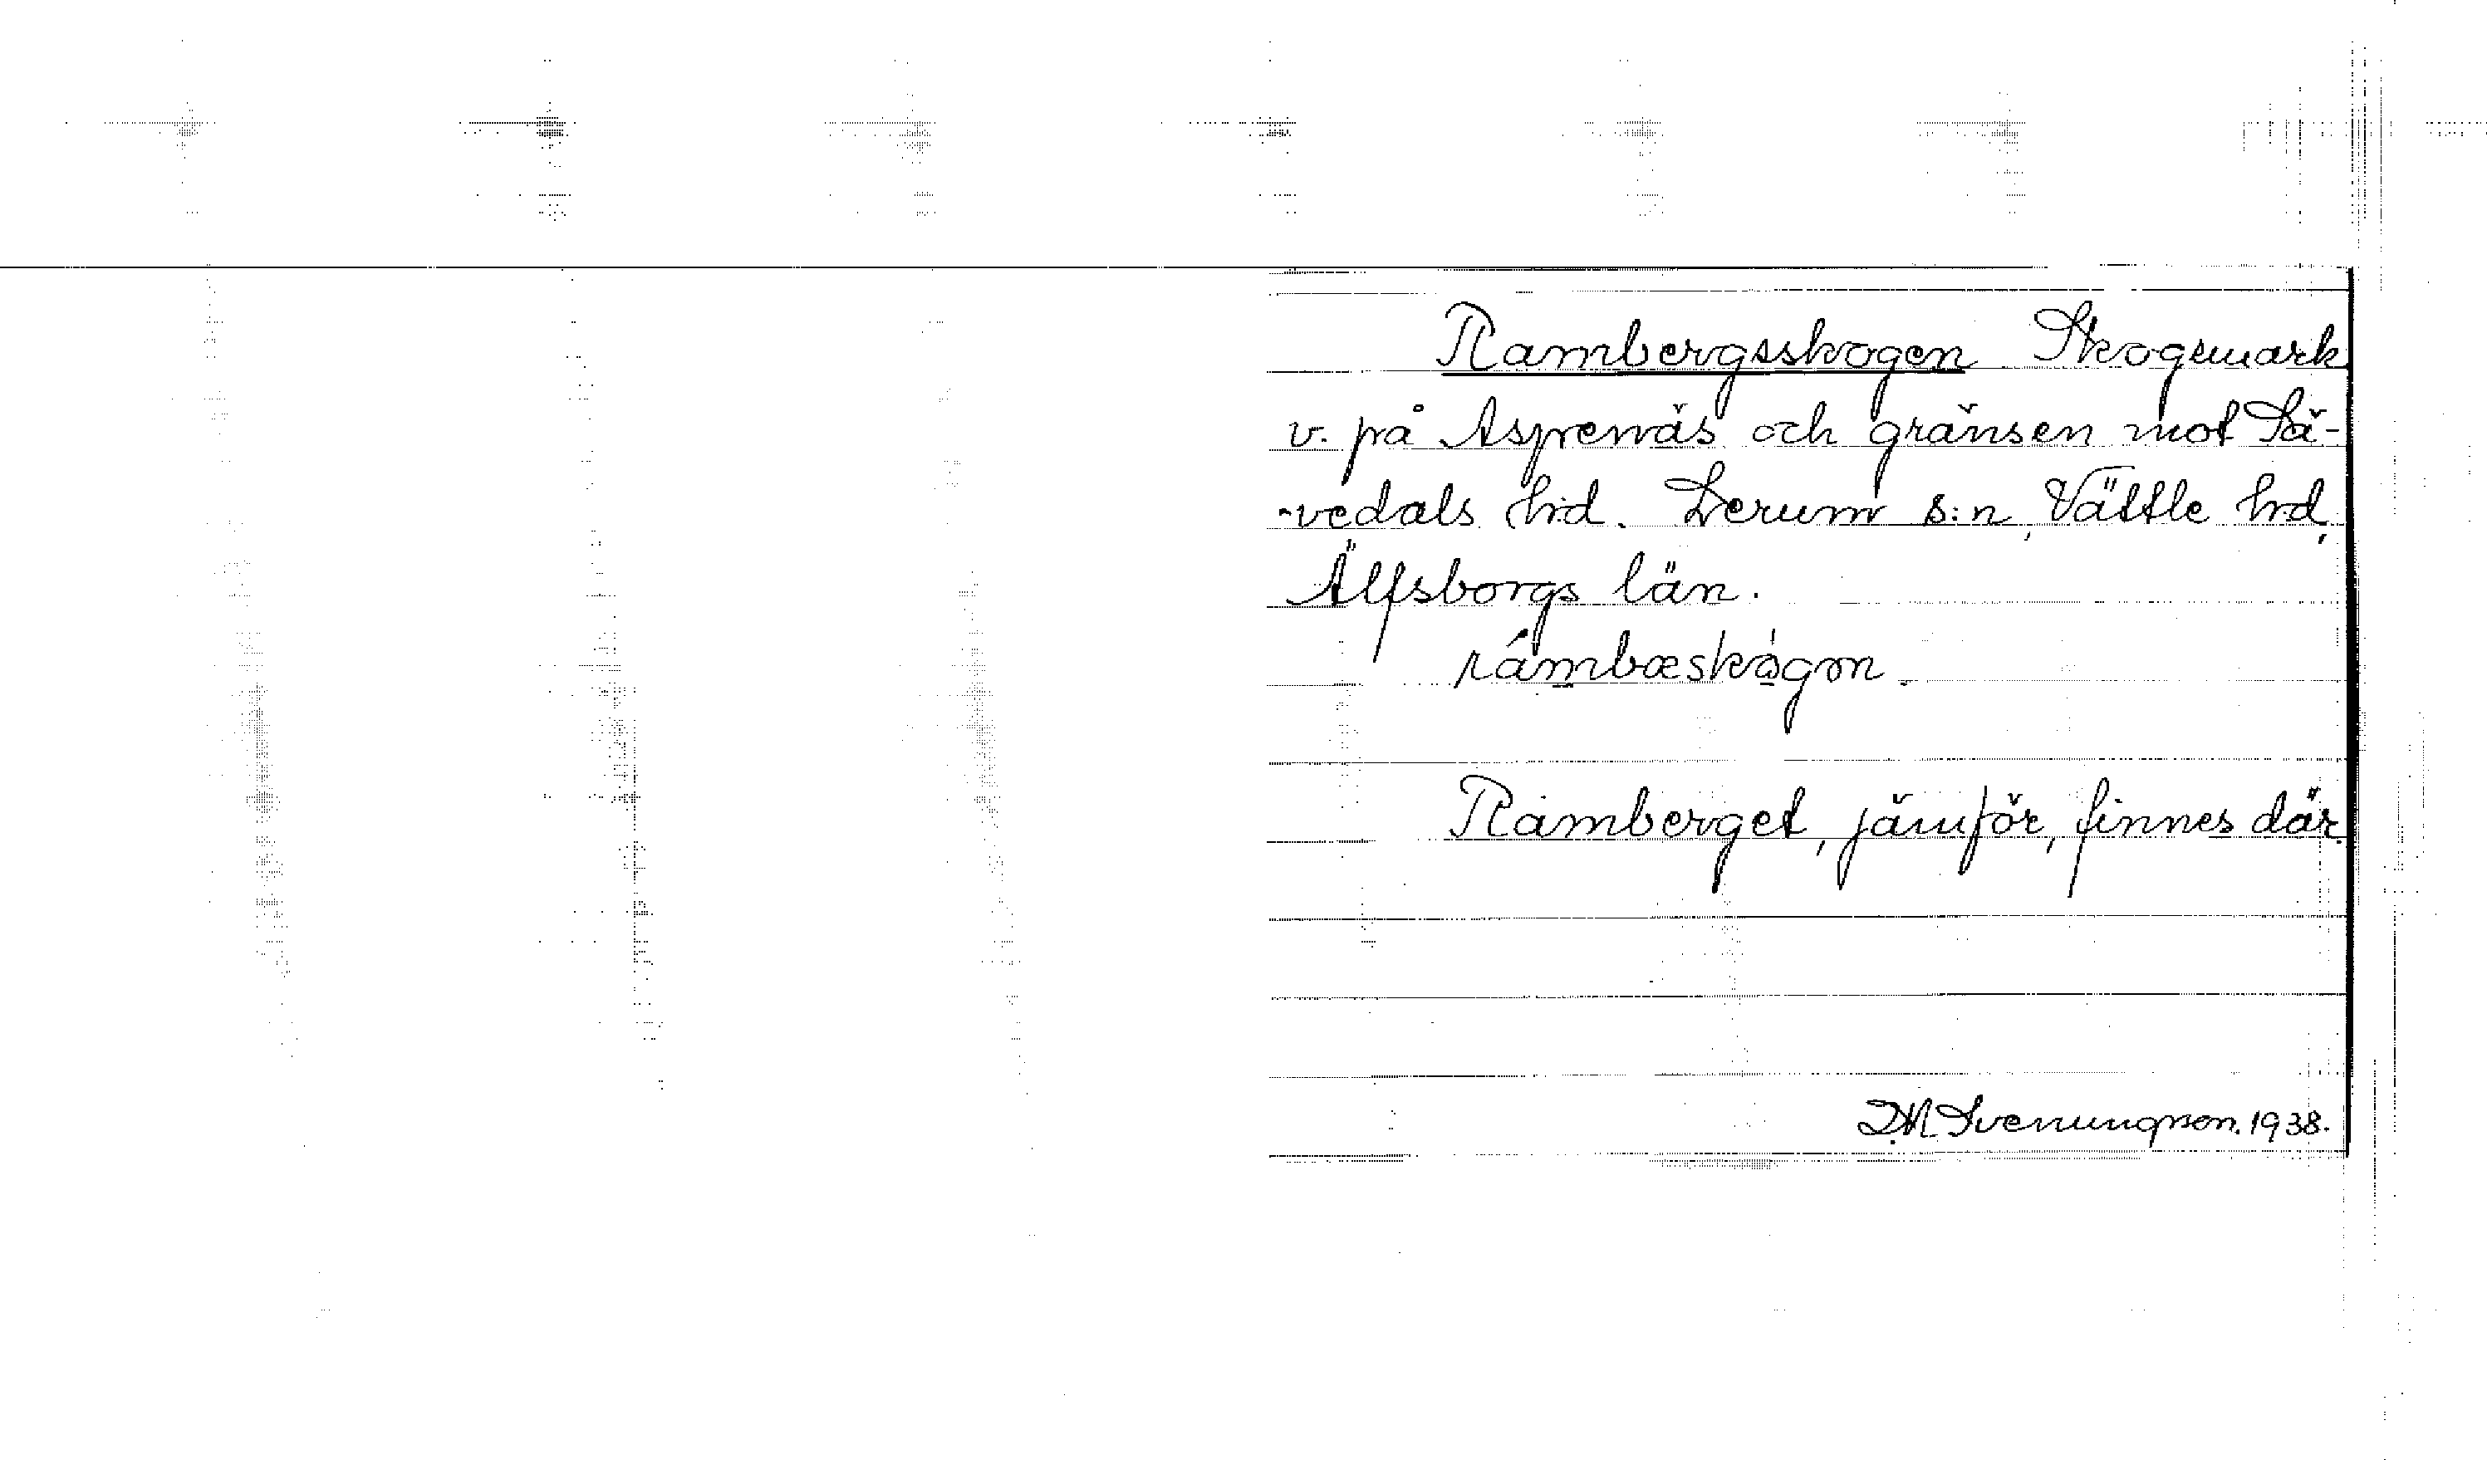 Rambergsskogen Skogsmark
v. på Aspenäs och gränsen mot Sä-
-vedals hd. Lerum s:n, Vättle hd,
Älfsborgs län.
råmbæskogon.
Ramberget, jämför, finnes där.
D.M. Svenungson. 1938.